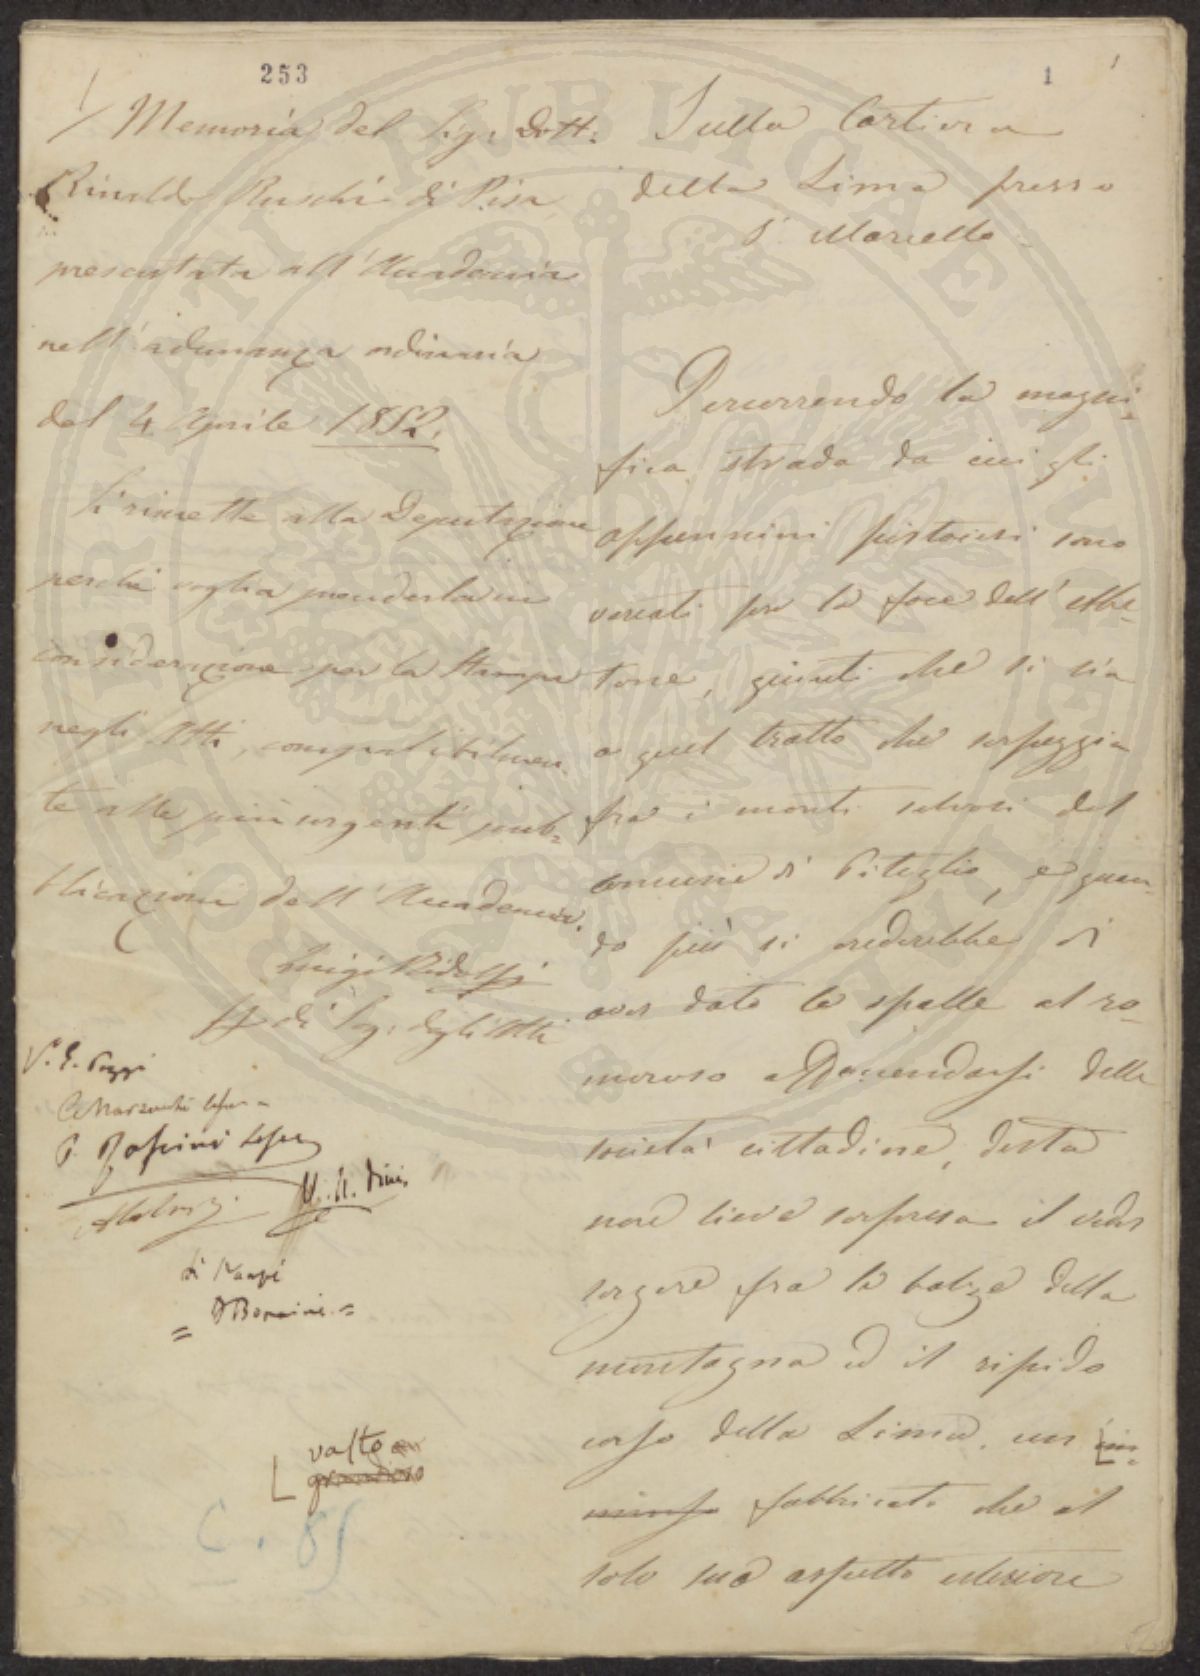 253
1
1
Memoria del Sig. Dott.
Rinaldo Ruschi di Pisa
presentata all'Accademia
nell'adunanza ordinaria
del 4 Aprile 1852.
Si rimette alla Deputazione
perchè voglia prenderla in
considerazione per la Stampa
negli Atti, compatibilmen-
te alle più urgenti pub-
blicazioni dell'Accademia.
Luigi Ridolfi
di Seg. degli Atti
V. E. Poggi
P. Rossini
di Nanzi
vasto
grandioso
C. 85
Sulla Cartiera
della Lima presso
S. Marcello
Percorrendo la magni-
fica strada da cui gli
appennini pistoiesi sono
varcati per la foce dell'Abe-
tone, giunti che si sia
a quel tratto che serpeggia
fra i monti selvosi del
comune di Piteglio, e quan-
do più si crederebbe di
aver dato le spalle al ro-
moroso affaccendarsi delle
società cittadine, desta
non lieve sorpresa il veder
sorgere fra le balze della
montagna ed il ripido
corso della Lima, un im-
menso fabbricato che al
solo suo aspetto esteriore